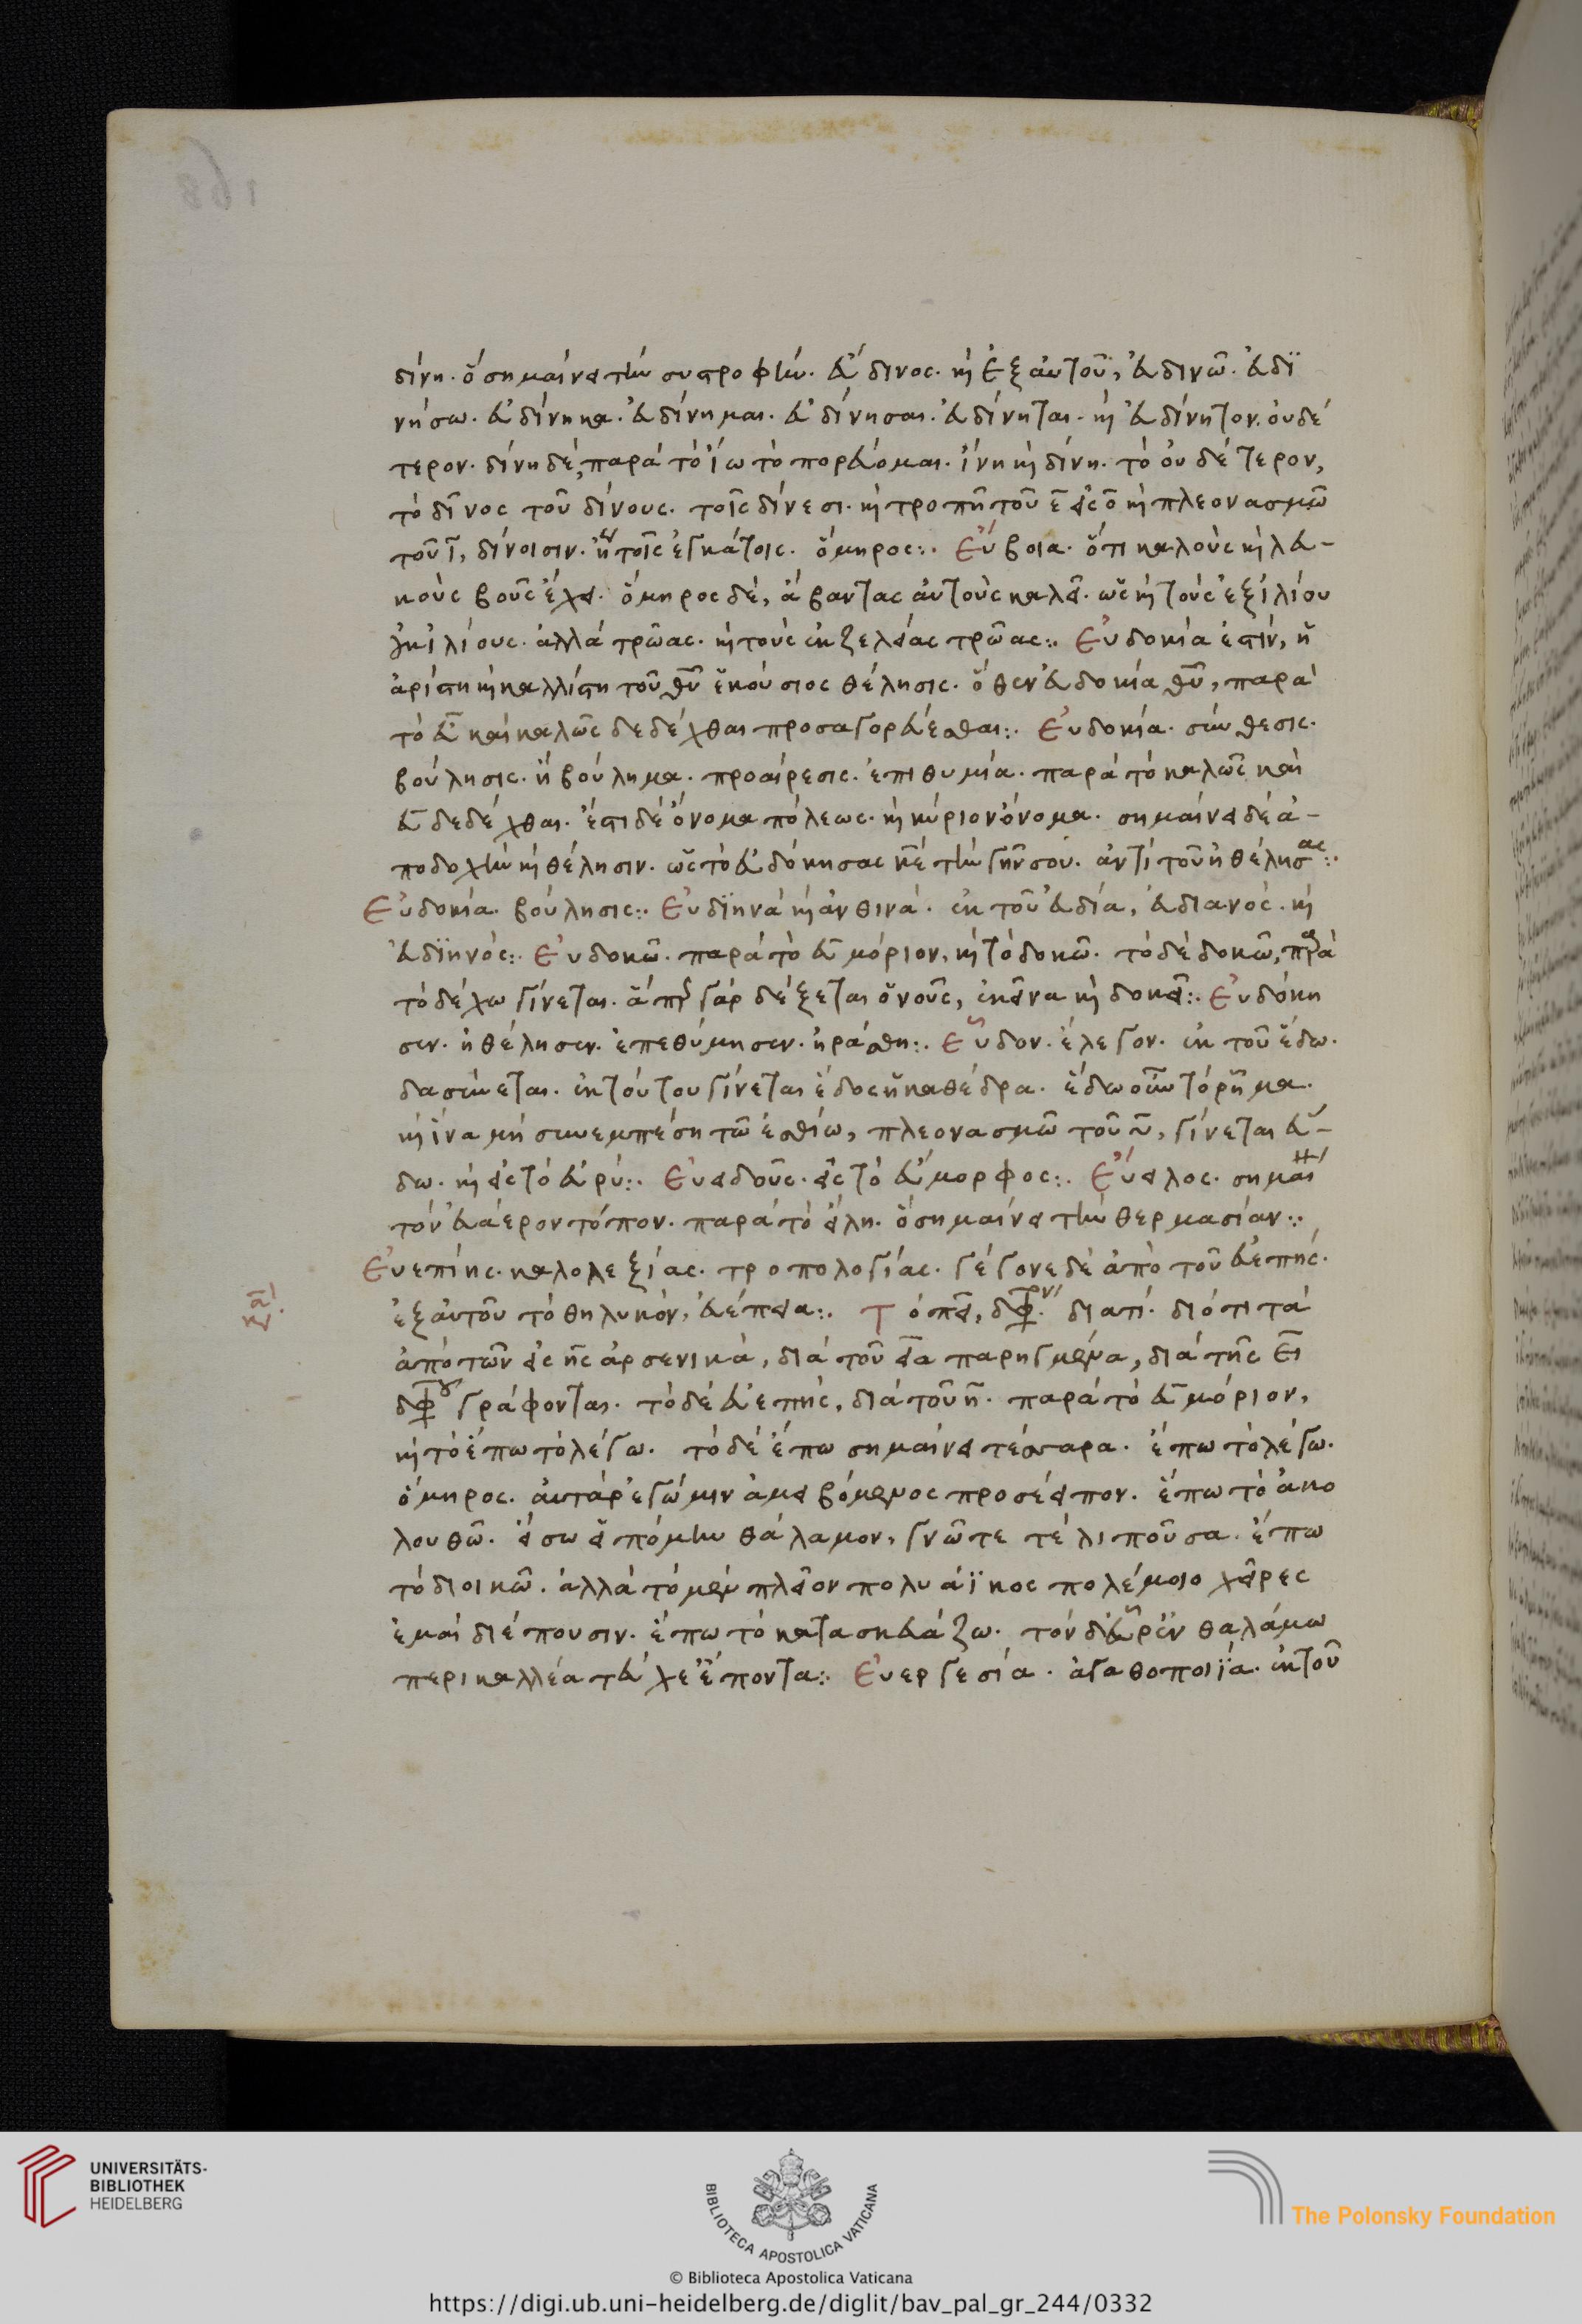 δίνη· ὃ σημαίνει τὴν συστροφήν· εὔδινος· καὶ ἐξ αὐτοῦ, εὐδινῶ· εὐδϊ
νήσω· εὐδίνηκα· εὐδίνημαι· εὐδίνησαι· εὐδίνηται· καὶ εὐδίνητον· οὐδέ
τερον· δίνη δέ, παρὰ τὸ ἵω τὸ πορεύομαι· ἵνη καὶ δίνη· τὸ οὐδέτερον,
τὸ δῖνος τοῦ δίνους· τοῖς δίνεσι· καὶ τροπῇ τοῦ ε̄ εἰς ο̄ καὶ πλεονασμῶ
τοῦ ῑ, δίνοισιν· ἐν τοῖς ἐγκάτοις· ὅμηρος:· Εὔβοια· ὅτι καλοὺς καὶ λευ-
κοὺς βοῦς ἔχει· ὅμηρος δέ, ἄβαντας αὐτοὺς καλεῖ· ὡς καὶ τοὺς ἐξ ἰλίου
οὐκ ἰλίους· ἀλλὰ τρῶας· καὶ τοὺς ἐκ ζελείας τρῶας:· Εὐδοκία ἐστίν, ἡ
ἀρίστη καὶ καλλίστη τοῦ θῡ ἑκούσιος θέλησις· ὅθεν εὐδοκία θῡ, παρὰ
τὸ εὖ καὶ καλῶς δεδέχθαι προσαγορεύεσθαι:· Εὐδοκία· σύνθεσις·
βούλησις· ἢ βούλημα· προαίρεσις· ἐπιθυμία· παρὰ τὸ καλῶς καὶ
εὖ δεδέχθαι· ἔστι δὲ ὄνομα πόλεως· καὶ κύριον ὄνομα· σημαίνει δὲ ἀ-
ποδοχὴν καὶ θέλησιν· ὡς τὸ εὐδόκησας κ̄ε τὴν γῆν σου· ἀντὶ τοῦ ἠθέλησας:·
Εὐδοκία· βούλησις:· Εὐδϊηνὰ καὶ ἀνθινά· ἐκ τοῦ εὐδία, εὐδιανός· καὶ
εὐδϊηνός:· Εὐδοκῶ· παρὰ τὸ εὖ μόριον, καὶ τὸ δοκῶ· τὸ δὲ δοκῶ, παρὰ
τὸ δέχω γίνεται· ἅπερ γὰρ δέξεται ὁ νοῦς, ἐκεῖνα καὶ δοκεῖ:· Εὐδόκη
σεν· ἠθέλησεν· ἐπεθύμησεν· ἠράσθη:· Εὗδον· ἔλεγον· ἐκ τοῦ ἕδω·
δασύνεται· ἐκ τούτου γίνεται ἕδος ἡ καθέδρα· ἕδω οὖν τὸ ῥῆμα·
καὶ ἵνα μὴ συνεμπέση τῶ ἐσθίω, πλεονασμῶ τοῦ ῡ, γίνεται εὕ-
δω· καὶ εἰς τὸ εὐρύ:· Εὐειδοῦς· εἰς τὸ εὔμορφος:· Εὔειλος· σημαίνει
τὸν εὐάερον τόπον· παρὰ τὸ εἵλη· ὃ σημαίνει τὴν θερμασίαν:·
Εὐεπίης· καλολεξίας· τροπολογίας· γέγονε δὲ ἀπὸ τοῦ εὐεπής·
ἐξ αὐτοῦ τὸ θηλυκόν, εὐέπεια:· Τὸ πει, δίφθογγον· διατί· διότι τὰ
ἀπὸ τῶν εἰς η̄ς ἀρσενικά, διὰ τοῦ εῑα παρηγμένα, διὰ τῆς εῑ
διφθόγγου γράφονται· τὸ δὲ εὐεπής, διὰ τοῦ η̄· παρὰ τὸ εὖ μόριον,
καὶ τὸ ἔπω τὸ λέγω· τὸ δὲ ἔπω σημαίνει τέσσαρα· ἔπω τὸ λέγω·
ὅμηρος· αὐτὰρ ἐγώ μιν ἀμειβόμενος προσέειπον· ἕπω τὸ ἀκο
λουθῶ· εἴσω εἱπόμην θάλαμον, γνῶτε τε λιποῦσα· ἕπω
τὸ διοικῶ· ἀλλὰ τὸ μὲν πλεῖον πολυάϊκος πολέμοιο χεῖρες
ἐμαὶ διέπουσιν· ἕπω τὸ κατασκευάζω· τὸν δ' εὗρ' ἐν θαλάμω
περικαλλέα τεύχε' ἕποντα:· Εὐεργεσία· ἀγαθοποιΐα· ἐκ τοῦ
168
UNIVERSITÄTS-
BIBLIOTHEK
HEIDELBERG
BIBLIOTECA APOSTOLICA VATICANA
The Polonsky Foundation
© Biblioteca Apostolica Vaticana
https://digi.ub.uni-heidelberg.de/diglit/bav_pal_gr_244/0332